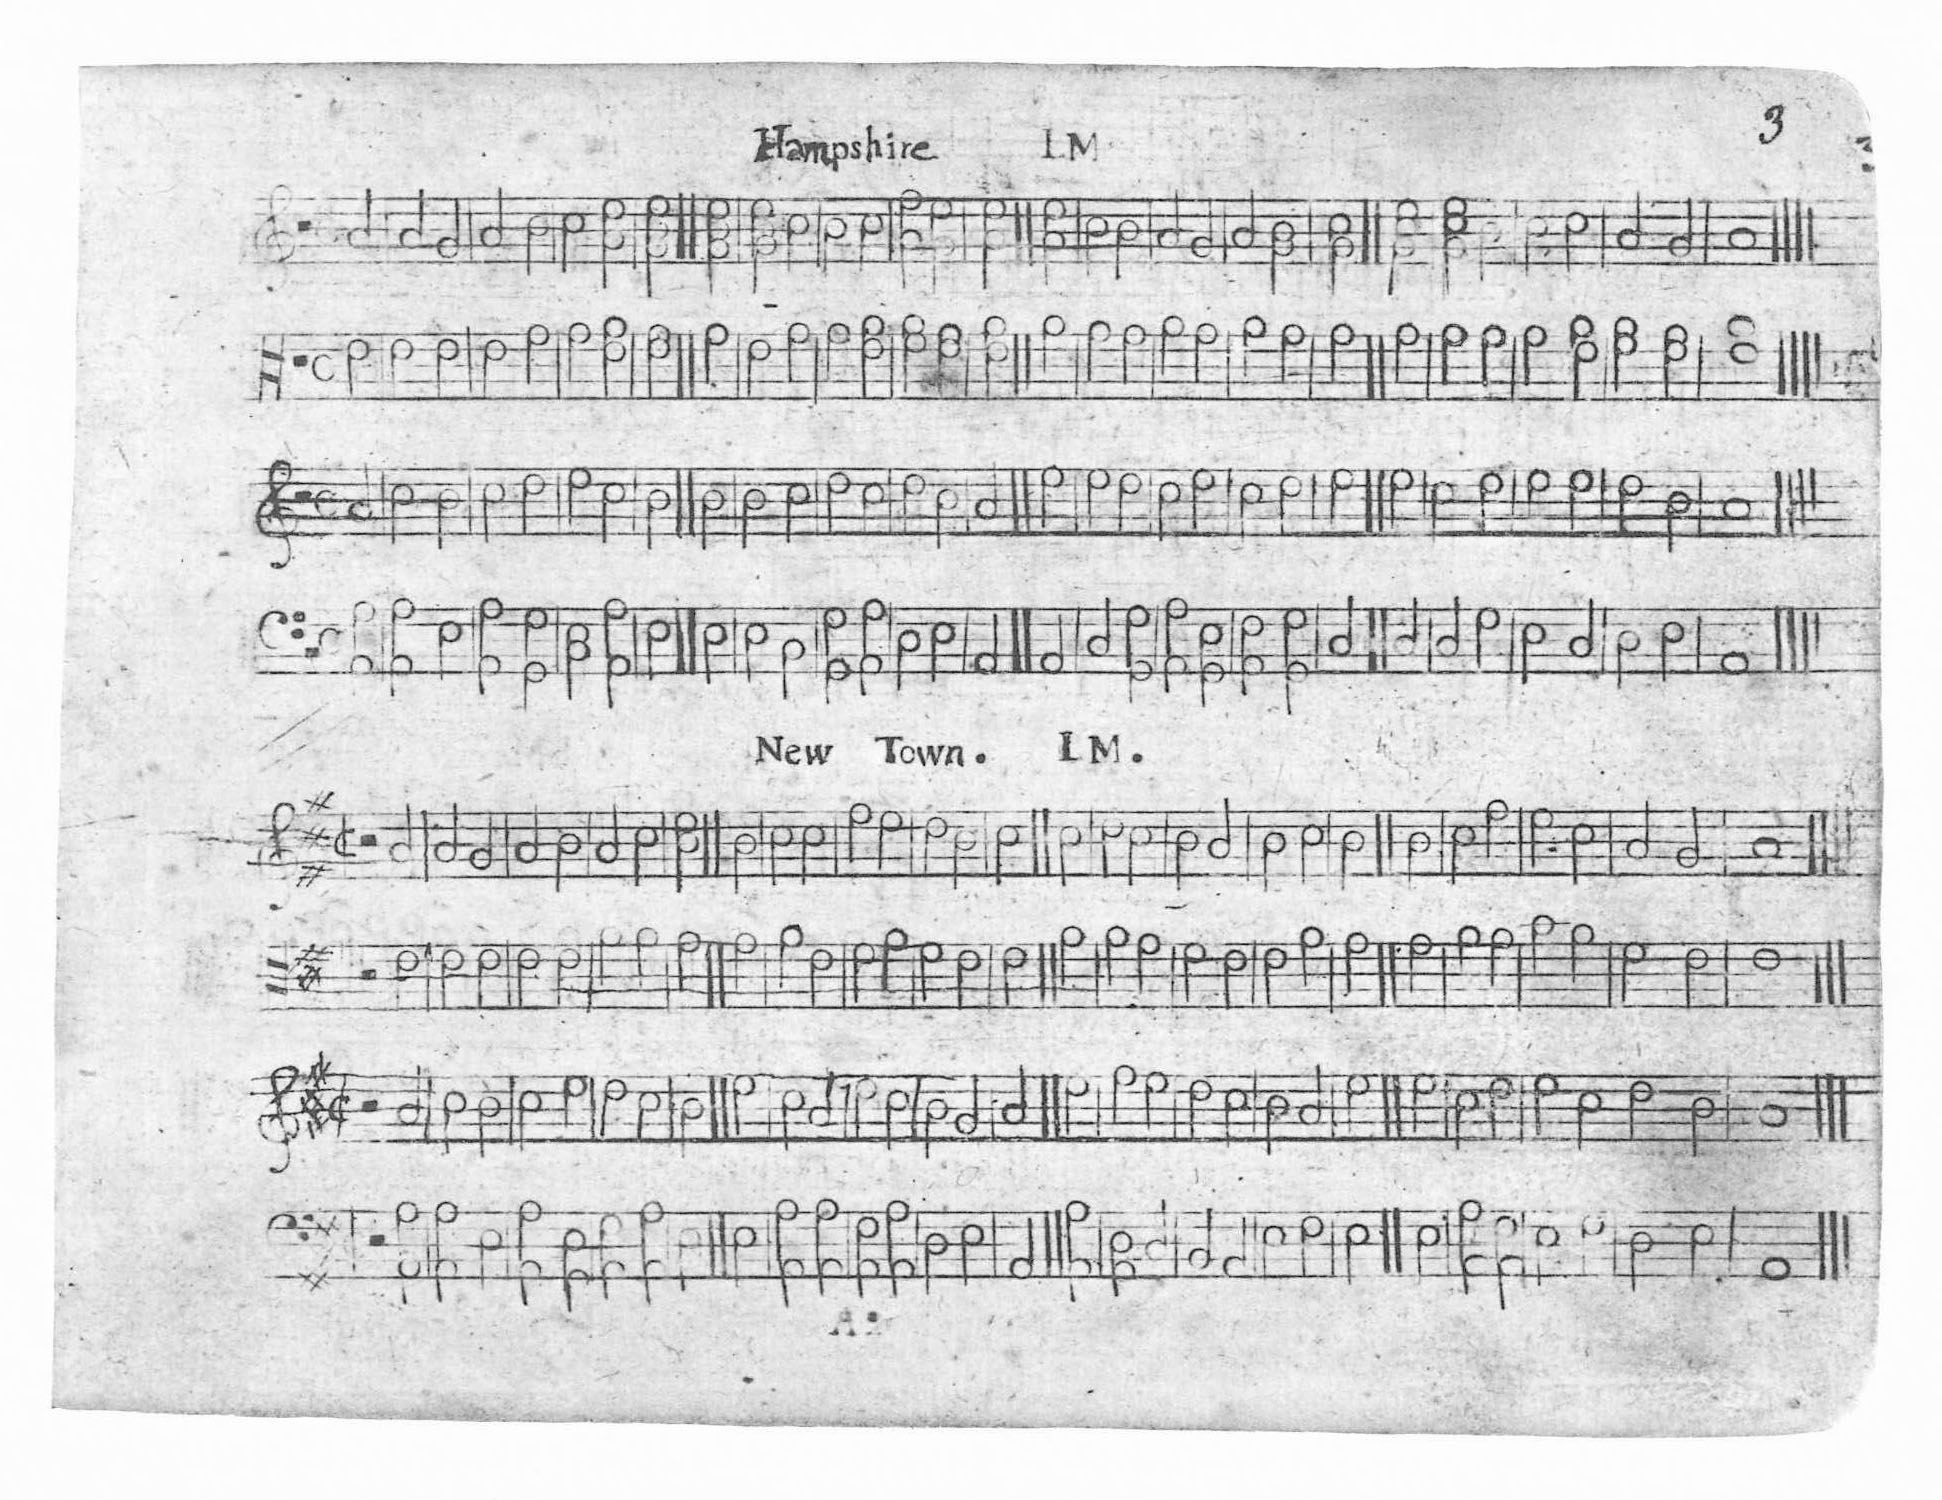 3
Hampshire L M
New Town. L M.
A: